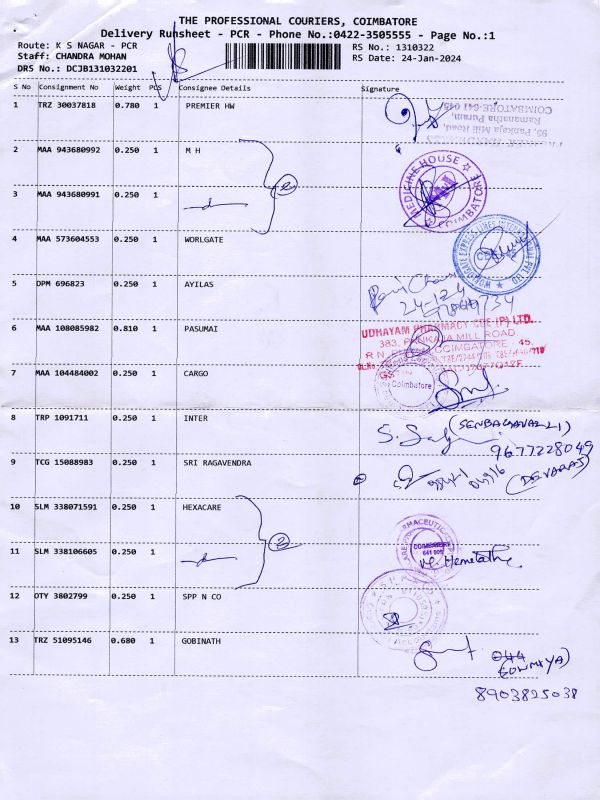 THE PROFESSIONAL COURIERS, COIMBATORE
Delivery Runsheet - PCR - Phone No.:0422-3505555 - Page No.:1
Route: K S NAGAR - PCR
RS No.: 1310322
Staff: CHANDRA MOHAN
RS Date: 24-Jan-2024
DRS No.: DCJB131032201
S No Consignment No Weight PCS Consignee Details Signature
1 TRZ 30037818 0.780 1 PREMIER HW
95, Pankaja Mill Road,
Ramanatha Puram,
COIMBATORE-641 045
2 MAA 943680992 0.250 1 M H
2
MEDICINE HOUSE
COIMBATORE
3 MAA 943680991 0.250 1
4 MAA 573604553 0.250 1 WORLGATE
5 DPM 696823 0.250 1 AYILAS
6 MAA 108085982 0.810 1 PASUMAI
UDHAYAM PHARMACY CBE (P) LTD.
383, PANKAJA MILL ROAD,
COIMBATORE 45.
7 MAA 104484002 0.250 1 CARGO
Coimbatore
8 TRP 1091711 0.250 1 INTER
(SENBAGAVALLI)
9677228049
9 TCG 15088983 0.250 1 SRI RAGAVENDRA
(DEVARAJ)
10 SLM 338071591 0.250 1 HEXACARE
2
COIMBATORE
641 005
11 SLM 338106605 0.250 1
12 OTY 3802799 0.250 1 SPP N CO
13 TRZ 51095146 0.680 1 GOBINATH
(SOWMIYA)
8903825038